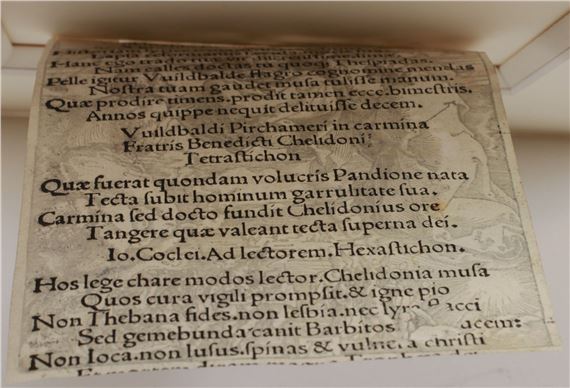 Hanc ego trado
Nam calles doctas tu quoq; Thespiadas.
Pelle igitur Vuildbalde flagro cognomine mendas
Nostra tuam gaudet musa tulisse manum.
Quæ prodire timens, prodit tamen ecce, bimestris.
Annos quippe nequit delituisse decem.
Vuildbaldi Pirchameri in carmina
Fratris Benedicti Chelidonii
Tetrastichon
Quæ fuerat quondam volucris Pandione nata
Tecta subit hominum garrulitate sua.
Carmina sed docto fundit Chelidonius ore
Tangere quæ valeant tecta superna dei.
Io. Coclei. Ad lectorem. Hexastichon.
Hos lege chare modos lector. Chelidonia musa
Quos cura vigili prompsit. & igne pio
Non Thebana fides. non lesbia. nec
Sed gemebunda canit Barbitos
Non Ioca. non lusus. spinas & christi